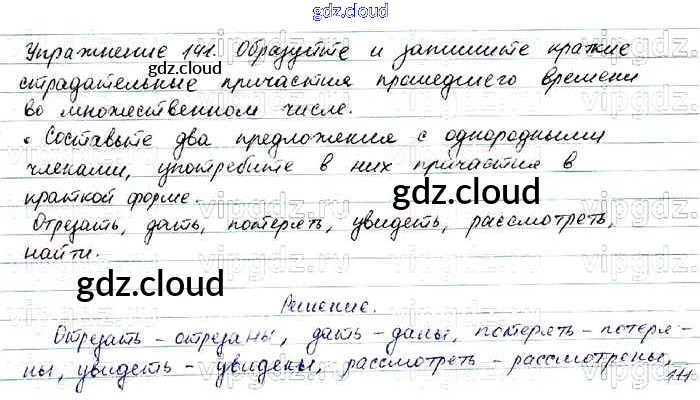 gdz.cloud
Упражнение 141. Образуйте и запишите краткие
gdz.cloud
страдательные причастия прошедшего времени
во множественном числе.
• Составьте два предложения с однородными
членами, употребите в них причастия в
краткой форме.
gdz.cloud
Отрезать, дать, потерять, увидеть, рассмотреть,
найти.
gdz.cloud
Решение.
Отрезать - отрезаны, дать - даны, потерять - потеря-
ны, увидеть - увидены, рассмотреть - рассмотрены,
111